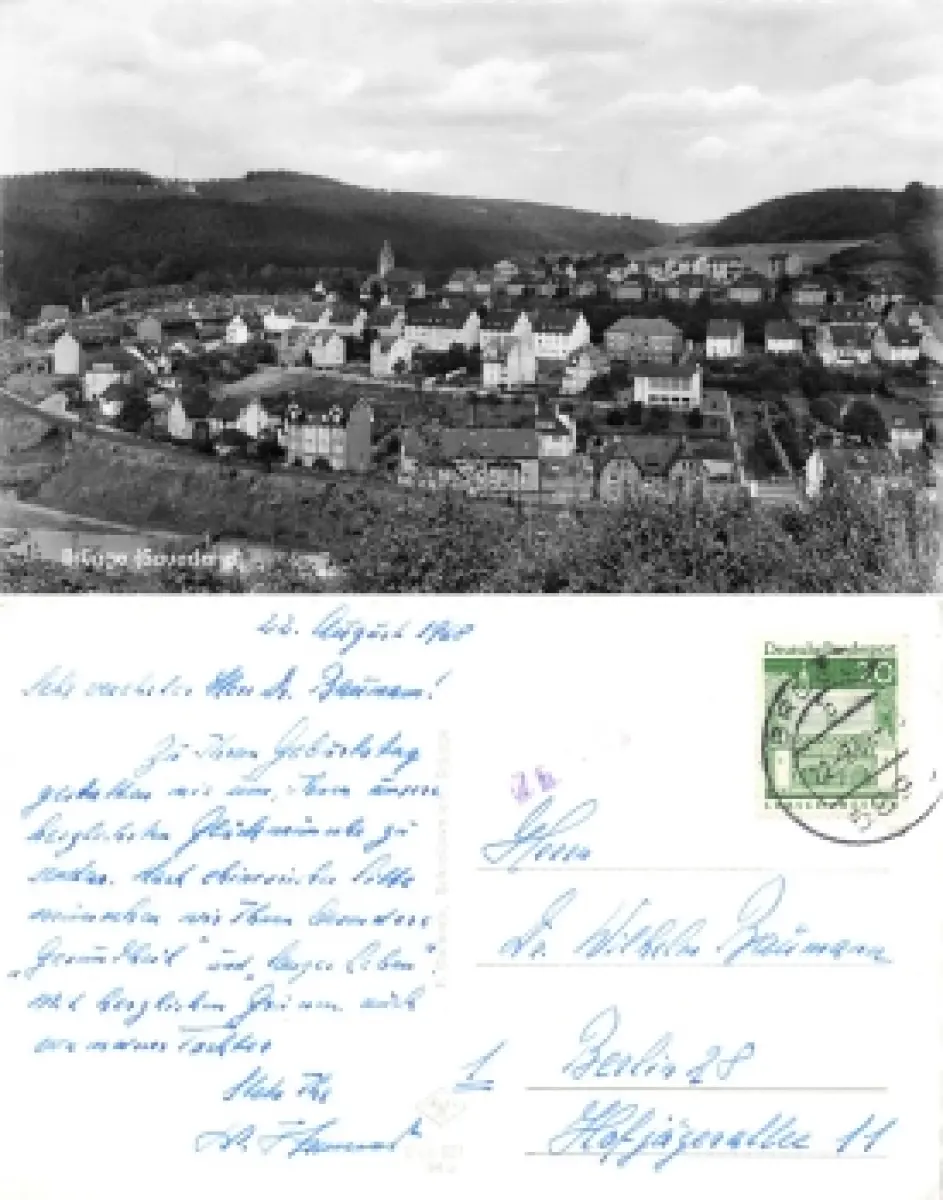 22. August 1968
Sehr verehrter Herr Dr. Baumann!
Zu Ihrem Geburtstag
gestatten wir uns, Ihnen unsere
herzlichsten Glückwünsche zu
senden. Nach chinesischer Sitte
wünschen wir Ihnen besonders
„Gesundheit" und „langes Leben"
mit herzlichen Grüssen, auch
von meiner Tochter
Stets Ihr
Deutsche Bundespost
Herrn
Dr. Wilhelm Baumann
1 Berlin 28
Hofjägerallee 11